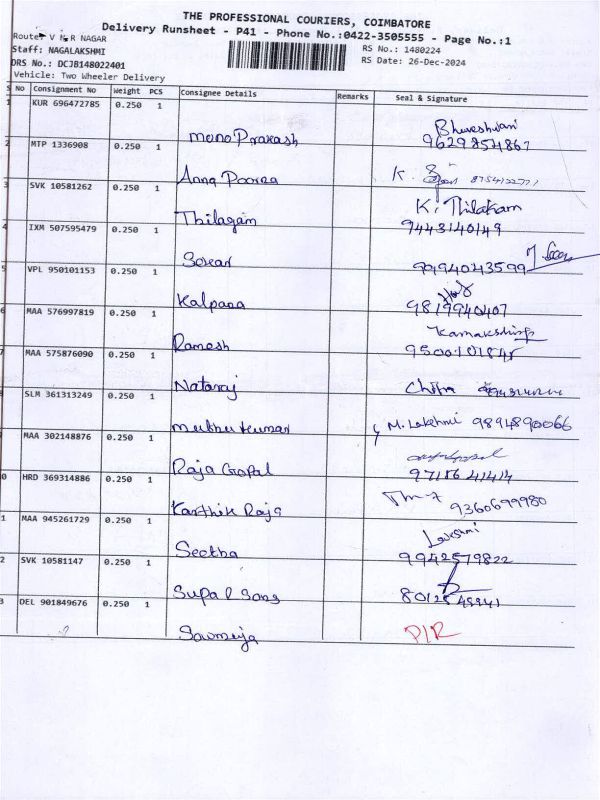 THE PROFESSIONAL COURIERS, COIMBATORE
Delivery Runsheet - P41 - Phone No.:0422-3505555 - Page No.:1
Route: V N R NAGAR
Staff: NAGALAKSHMI
DRS No.: DCJB148022401
Vehicle: Two Wheeler Delivery
RS No.: 1480224
RS Date: 26-Dec-2024
S No Consignment No Weight PCS Consignee Details Remarks Seal & Signature
1 KUR 696472785 0.250 1 Mono Prakash Bhuveshwari 9629854867
2 MTP 1336908 0.250 1 Anna Poorna K.
3 SVK 10581262 0.250 1 Thilagam K. Thilakam 9443140149
4 IXM 507595479 0.250 1 7994043599
5 VPL 950101153 0.250 1 Kalpana 9819940407
6 MAA 576997819 0.250 1 Ramesh 9500101845
7 MAA 575876090 0.250 1 Nataraj Chitra
SLM 361313249 0.250 1 Muthu kumar M. Lakshmi 9894890066
MAA 302148876 0.250 1 Raja Gopal 9715641414
0 HRD 369314886 0.250 1 Karthik Raja 9360699980
1 MAA 945261729 0.250 1 Seetha Lakshmi 9942579822
2 SVK 10581147 0.250 1
3 DEL 901849676 0.250 1 Sowmiya P/R